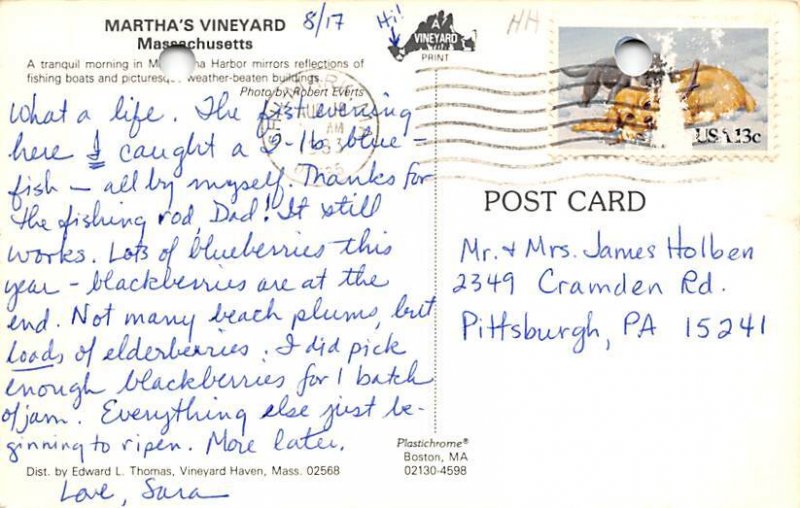 MARTHA'S VINEYARD
Massachusetts
8/17
Hi!
A
VINEYARD
PRINT
HH
A tranquil morning in Harbor mirrors reflections of
fishing boats and picturesque weather-beaten buildings.
Photo by Robert Everts
USA 13c
What a life. The first evening
here I caught a 5-lb blue-
fish – all by myself. Thanks for
the fishing rod, Dad! It still
works. Lots of blueberries this
year – blackberries are at the
end. Not many beach plums, but
loads of elderberries. I did pick
enough blackberries for 1 batch
of jam. Everything else just be-
ginning to ripen. More later.
Love, Sara
POST CARD
Mr. + Mrs. James Holben
2349 Cramden Rd.
Pittsburgh, PA 15241
Plastichrome®
Boston, MA
02130-4598
Dist. by Edward L. Thomas, Vineyard Haven, Mass. 02568